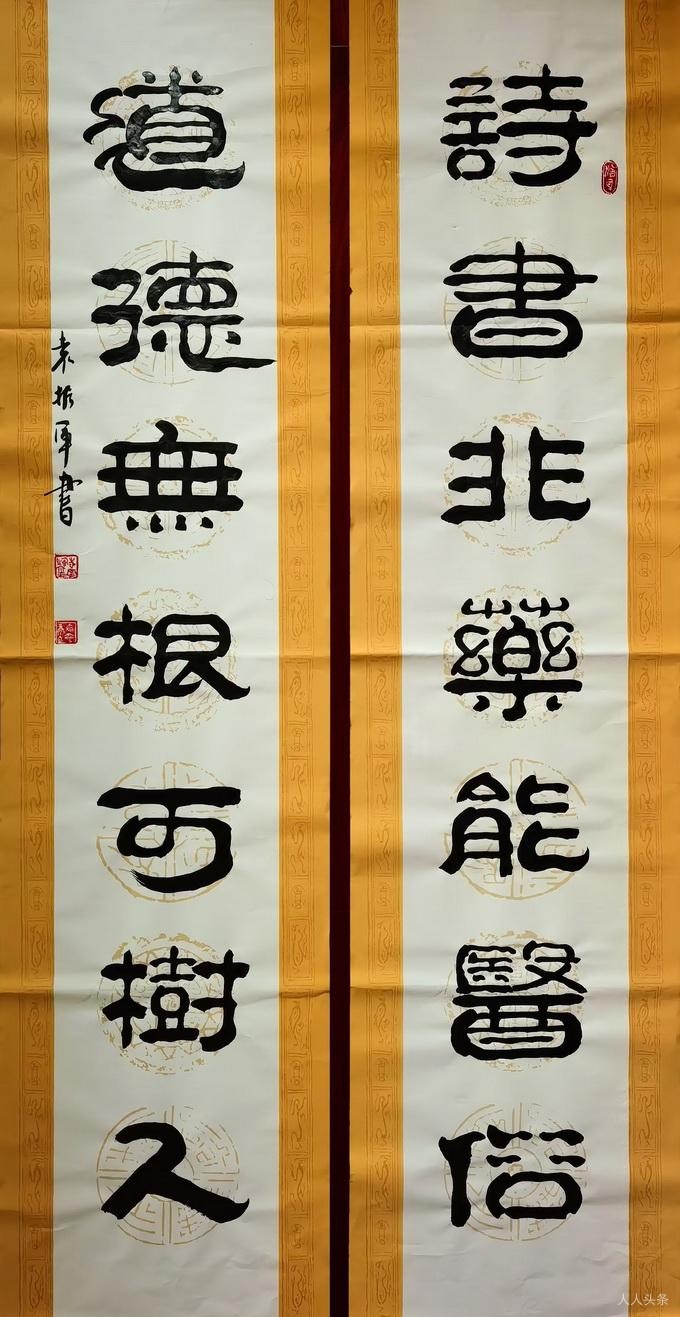 詩書非藥能醫俗
道德無根可樹人
袁振軍書
人人头条